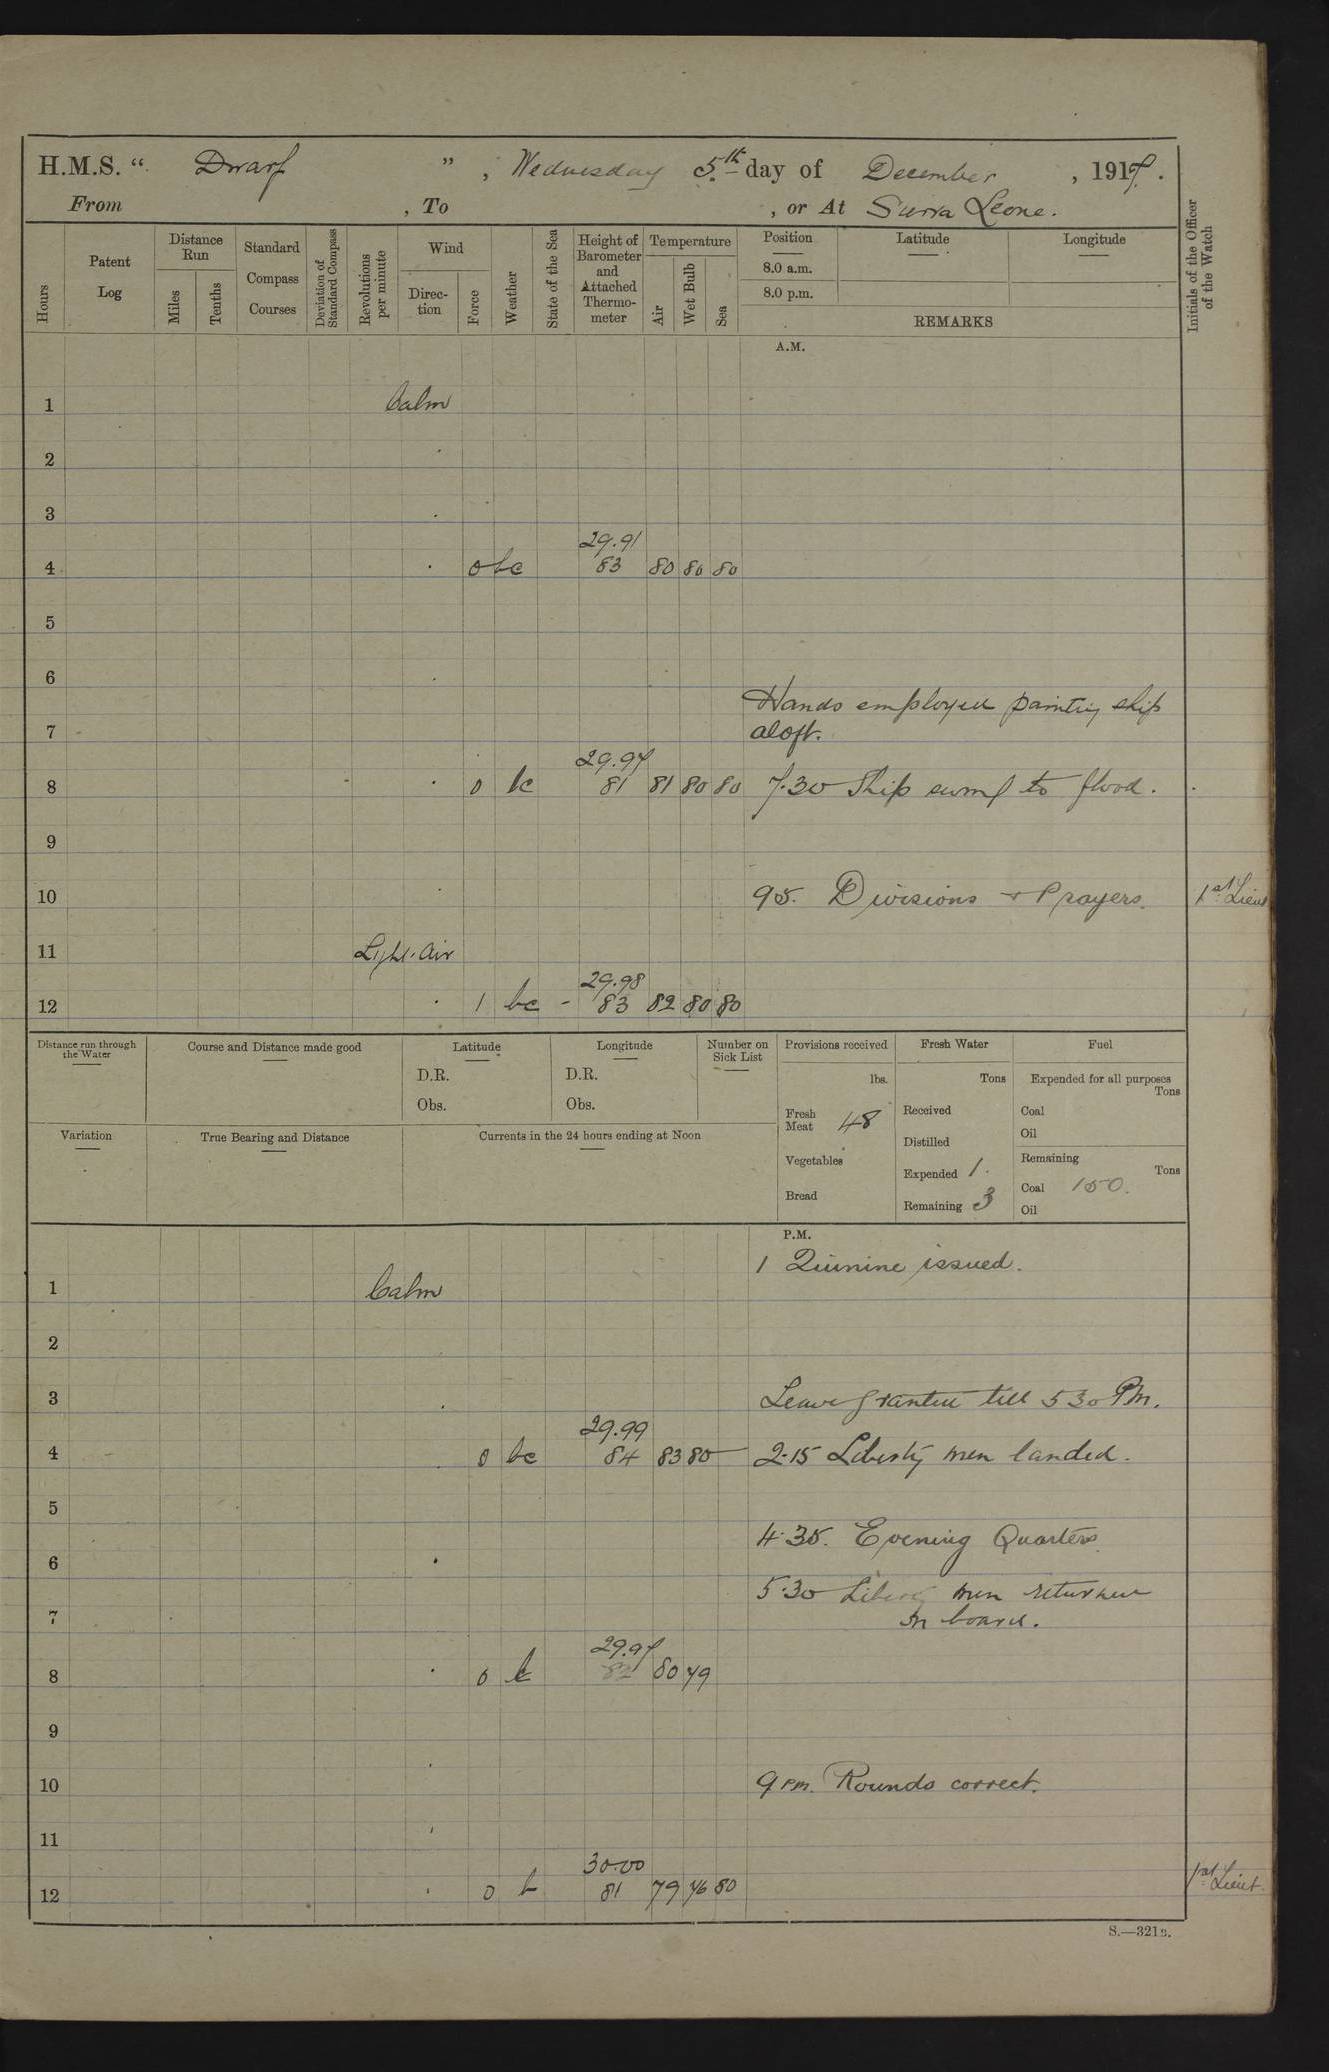 H.M.S. “ Dwarf ” , Wednesday 5th day of December , 1917 .
From , To , or At Sierra Leone.
Hours
Patent Log
Distance Run
Miles
Tenths
Standard Compass Courses
Deviation of Standard Compass
Revolutions per minute
Wind
Direc-tion
Force
Weather
State of the Sea
Height of Barometer and Attached Thermo-meter
Temperature
Air
Wet Bulb
Sea
Position
Latitude
Longitude
8.0 a.m.
8.0 p.m.
REMARKS
Initials of the Officer of the Watch
A.M.
1 Calm
2
3
29.91
4 0 bc 83 80 80 80
5
6
Hands employed painting ship
7 aloft.
29.97
8 0 bc 81 81 80 80 7.30 Ship swung to flood.
9
10 95. Divisions + Prayers. 1st Lieut
11 Light Air
29.98
12 1 bc - 83 82 80 80
Distance run through the Water
Course and Distance made good
Latitude
D.R.
Obs.
Longitude
D.R.
Obs.
Number on Sick List
Provisions received
lbs.
Fresh Meat 48
Vegetables
Bread
Fresh Water
Tons
Received
Distilled
Expended 1.
Remaining 3
Fuel
Expended for all purposes
Tons
Coal
Oil
Remaining
Tons
Coal 150.
Oil
Variation
True Bearing and Distance
Currents in the 24 hours ending at Noon
P.M.
1 Quinine issued.
1 Calm
2
3 Leave granted till 5 30 PM.
29.99
4 0 bc 84 83 80 2.15 Liberty men landed.
5
4.35. Evening Quarters.
6
5.30 Liberty men returned
7 on board.
29.97
8 0 b 82 80 79
9
10 9 PM. Rounds correct.
11
30.00
12 0 b 81 79 76 80 1st Lieut.
S.—321B.